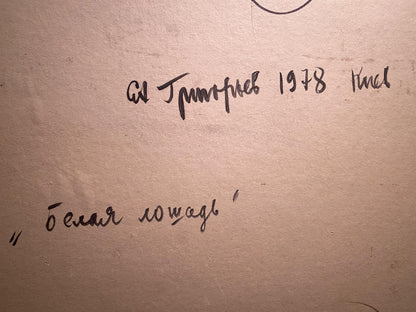 СА Григорьев 1978 Киев
„белая лошадь"